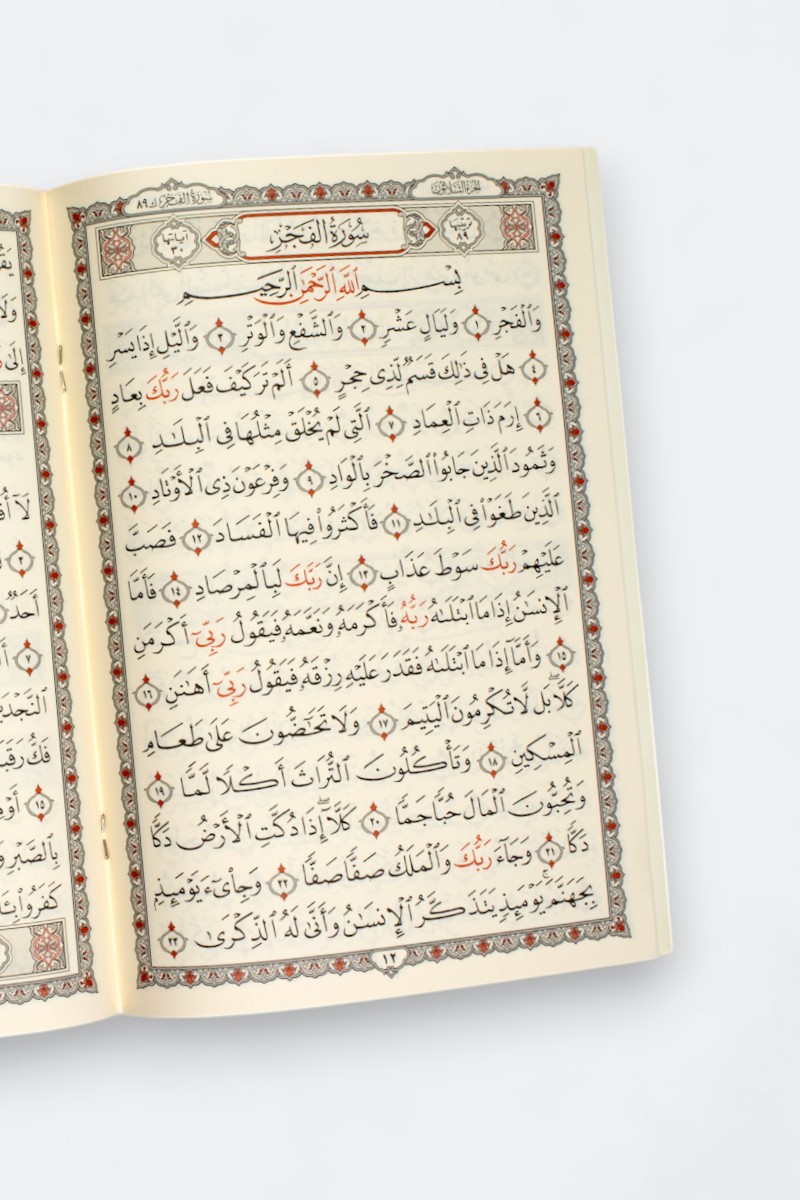 الجزء الثلاثون
سورة الفجر ك ٨٩
ترتيبها ٨٩
سُورَةُ الفَجْرِ
آياتها ٣٠
بِسْمِ ٱللَّهِ ٱلرَّحْمَٰنِ ٱلرَّحِيمِ
وَٱلْفَجْرِ ١ وَلَيَالٍ عَشْرٍ ٢ وَٱلشَّفْعِ وَٱلْوَتْرِ ٣ وَٱلَّيْلِ إِذَا يَسْرِ
٤ هَلْ فِى ذَٰلِكَ قَسَمٌ لِّذِى حِجْرٍ ٥ أَلَمْ تَرَ كَيْفَ فَعَلَ رَبُّكَ بِعَادٍ
٦ إِرَمَ ذَاتِ ٱلْعِمَادِ ٧ ٱلَّتِى لَمْ يُخْلَقْ مِثْلُهَا فِى ٱلْبِلَٰدِ ٨
وَثَمُودَ ٱلَّذِينَ جَابُوا۟ ٱلصَّخْرَ بِٱلْوَادِ ٩ وَفِرْعَوْنَ ذِى ٱلْأَوْتَادِ ١٠
ٱلَّذِينَ طَغَوْا۟ فِى ٱلْبِلَٰدِ ١١ فَأَكْثَرُوا۟ فِيهَا ٱلْفَسَادَ ١٢ فَصَبَّ
عَلَيْهِمْ رَبُّكَ سَوْطَ عَذَابٍ ١٣ إِنَّ رَبَّكَ لَبِٱلْمِرْصَادِ ١٤ فَأَمَّا
ٱلْإِنسَٰنُ إِذَا مَا ٱبْتَلَىٰهُ رَبُّهُۥ فَأَكْرَمَهُۥ وَنَعَّمَهُۥ فَيَقُولُ رَبِّىٓ أَكْرَمَنِ
١٥ وَأَمَّآ إِذَا مَا ٱبْتَلَىٰهُ فَقَدَرَ عَلَيْهِ رِزْقَهُۥ فَيَقُولُ رَبِّىٓ أَهَٰنَنِ ١٦
كَلَّا ۖ بَل لَّا تُكْرِمُونَ ٱلْيَتِيمَ ١٧ وَلَا تَحَٰٓضُّونَ عَلَىٰ طَعَامِ
ٱلْمِسْكِينِ ١٨ وَتَأْكُلُونَ ٱلتُّرَاثَ أَكْلًا لَّمًّا ١٩
وَتُحِبُّونَ ٱلْمَالَ حُبًّا جَمًّا ٢٠ كَلَّآ ۖ إِذَا دُكَّتِ ٱلْأَرْضُ دَكًّا
دَكًّا ٢١ وَجَآءَ رَبُّكَ وَٱلْمَلَكُ صَفًّا صَفًّا ٢٢ وَجِا۟ىٓءَ يَوْمَئِذٍۭ
بِجَهَنَّمَ ۚ يَوْمَئِذٍ يَتَذَكَّرُ ٱلْإِنسَٰنُ وَأَنَّىٰ لَهُ ٱلذِّكْرَىٰ ٢٣
١٢